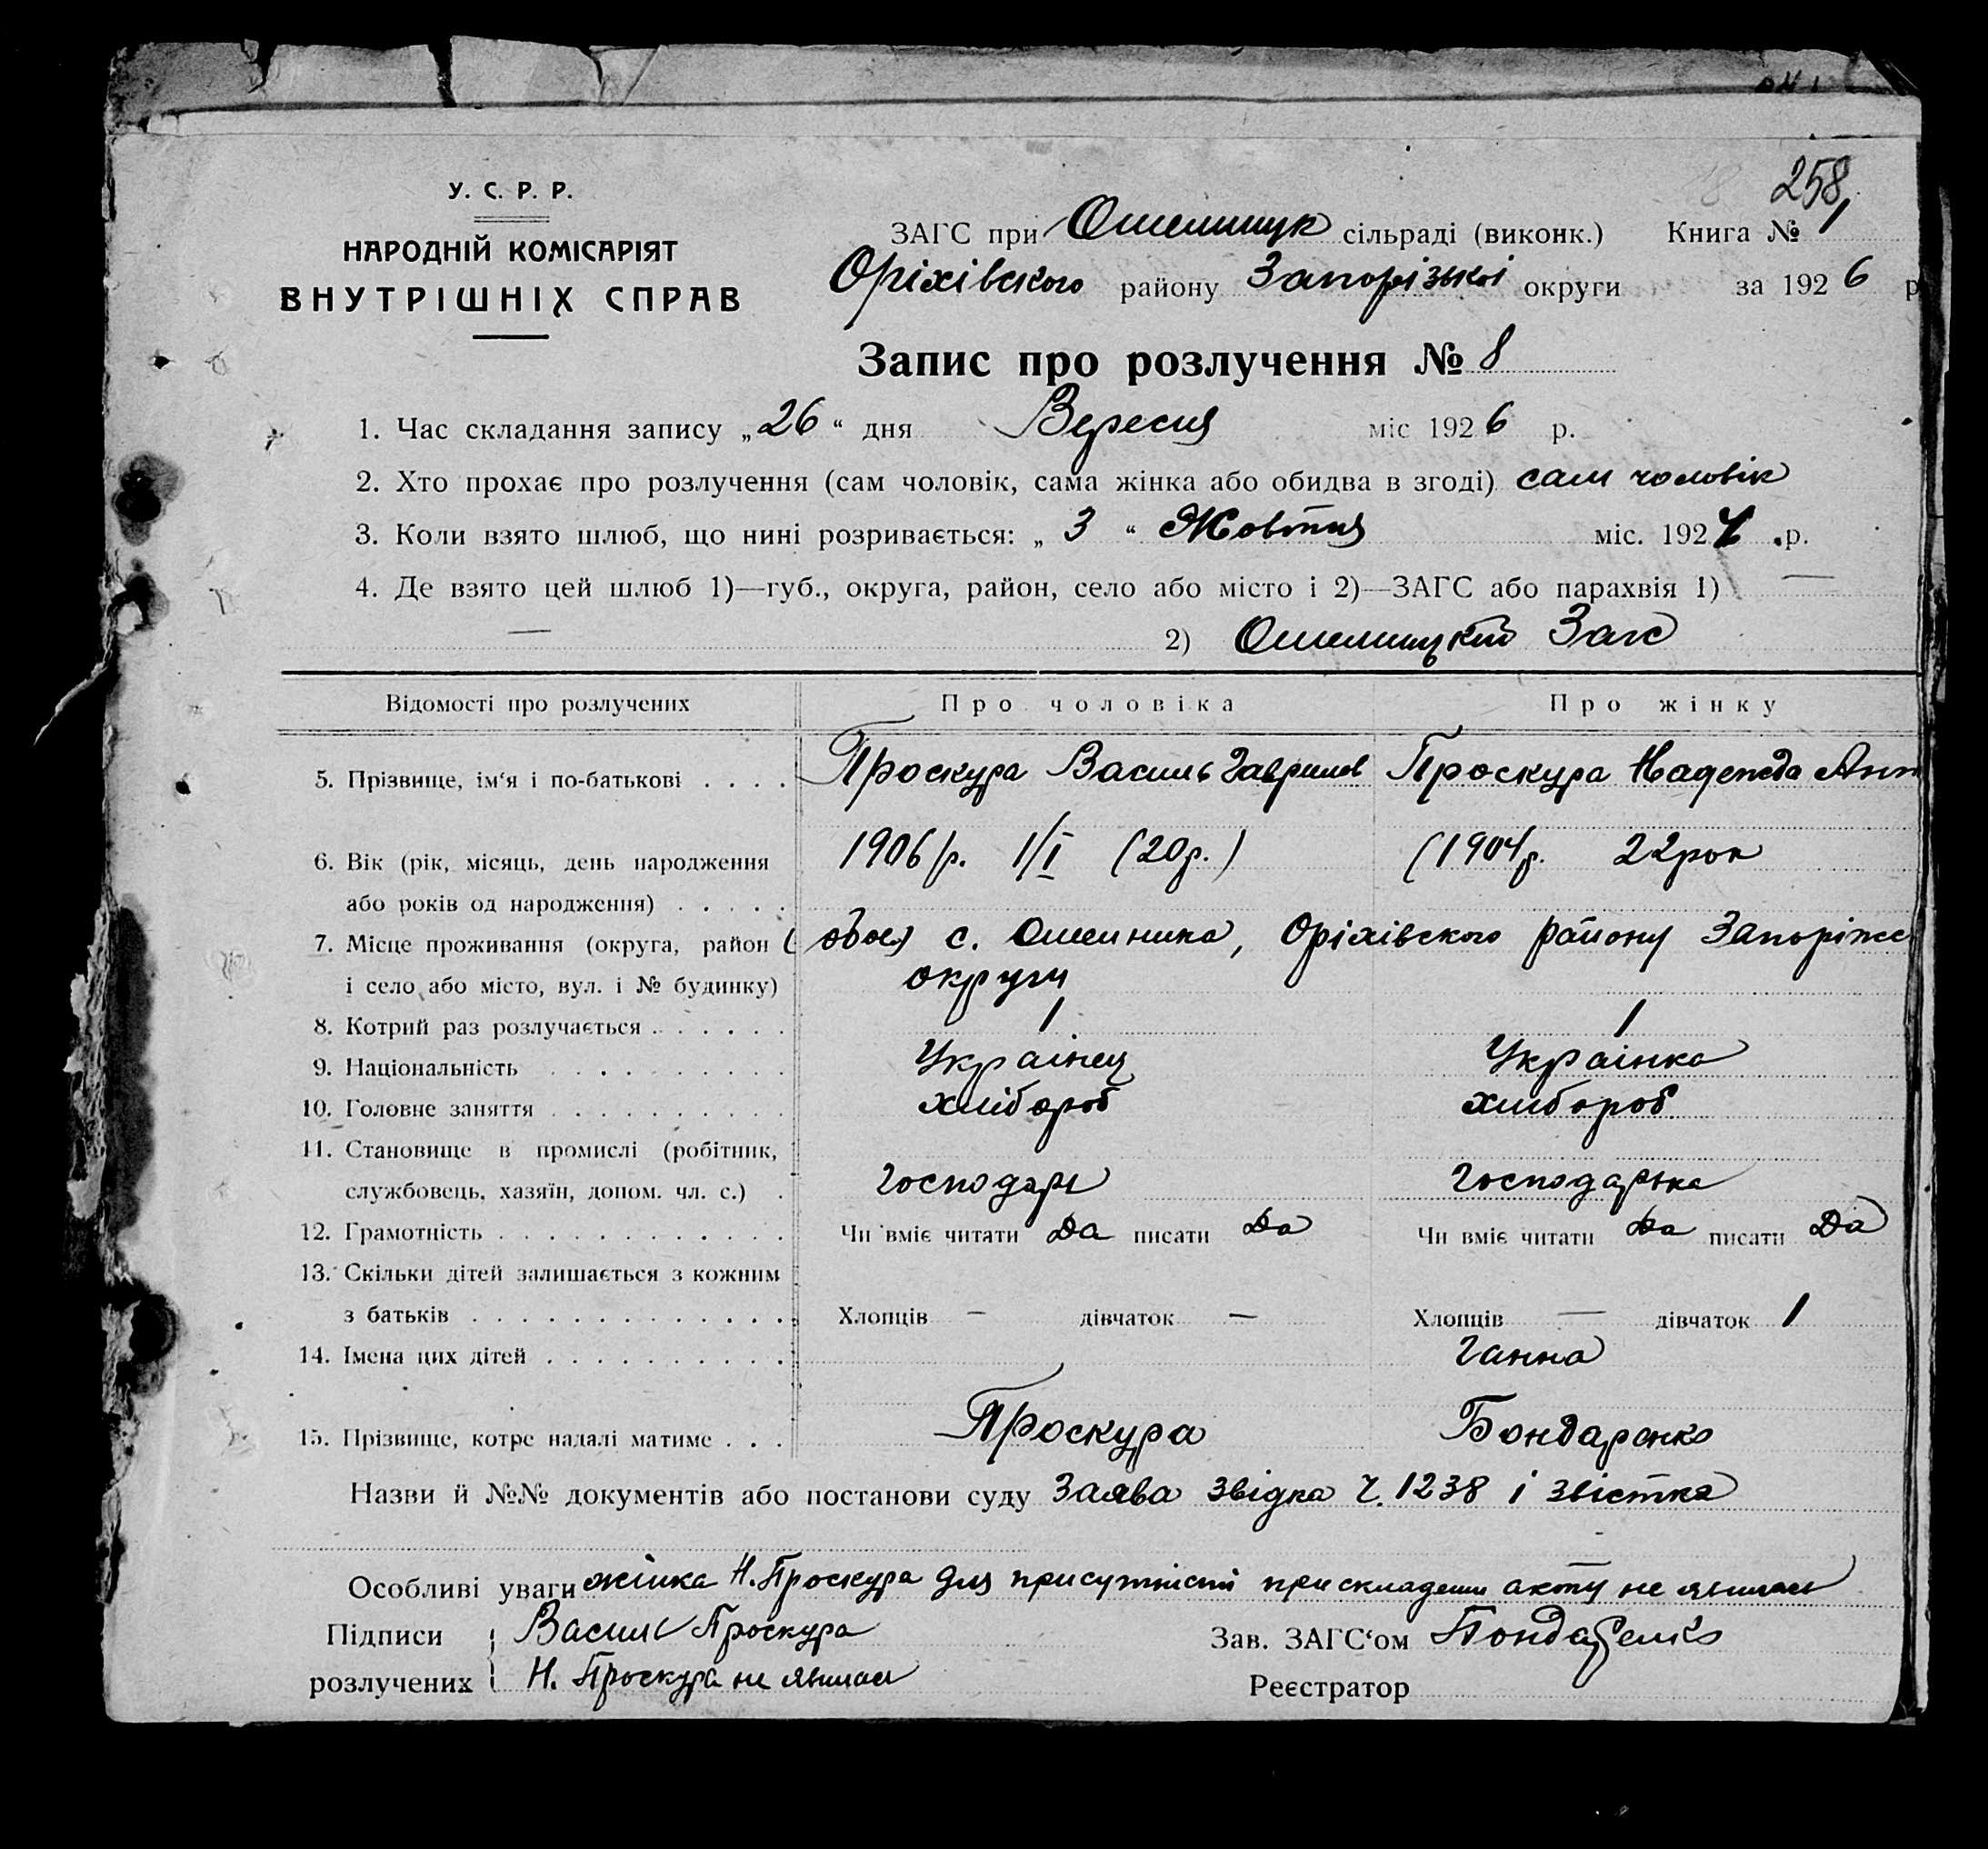 258
У. С. Р. Р.
НАРОДНІЙ КОМІСАРІЯТ
ВНУТРІШНІХ СПРАВ
ЗАГС при Омельницук сільраді (виконк.) Книга № 1
Оріхівского району Запорізькоі округи за 1926 р
Запис про розлучення № 8
1. Час складання запису „26“ дня Вересня міс 1926 р.
2. Хто прохає про розлучення (сам чоловік, сама жінка або обидва в згоді) сам чоловік
3. Коли взято шлюб, що нині розривається: „ 3 “ Жовтня міс. 1924 .р.
4. Де взято цей шлюб 1)—губ., округа, район, село або місто і 2)—ЗАГС або парахвія 1) —
— 2) Загс
Відомості про розлучених Про чоловіка Про жінку
5. Прізвище, ім‘я і по-батькові . . . . Проскура Василь Гаврилов Проскура Надежда Анн
6. Вік (рік, місяць, день народження 1906 р. 1/I (20 р.) (1904 р. 22 рок
або років од народження) . . . . .
7. Місце проживання (округа, район ( обоє) с. Омельника, Оріхівского району Запоріже
і село або місто, вул. і № будинку) округи
8. Котрий раз розлучається . . . . . . 1 1
9. Національність . . . . . . . . . Украінец Украінка
10. Головне заняття . . . . . . . . . хлібороб хлібороб
11. Становище в промислі (робітник,
службовець, хазяїн, допом. чл. с.) . господарь господарька
12. Грамотність . . . . . . . . . . . . Чи вміє читати Да писати Да Чи вміє читати Да писати Да
13. Скільки дітей залишається з кожним
з батьків . . . . . . . . . . . . . Хлопців — дівчаток — Хлопців — дівчаток 1
14. Імена цих дітей . . . . . . . . . . Ганна
15. Прізвище, котре надалі матиме . . . Проскура Бондаренко
Назви й №№ документів або постанови суду Заява звідка ч. 1238 і звістка
Особливі уваги жінка Н. Проскура для присутністі при складени акту не явилась
Підписи Василь Проскура Зав. ЗАГС‘ом
розлучених Н. Проскура не явилась Реєстратор